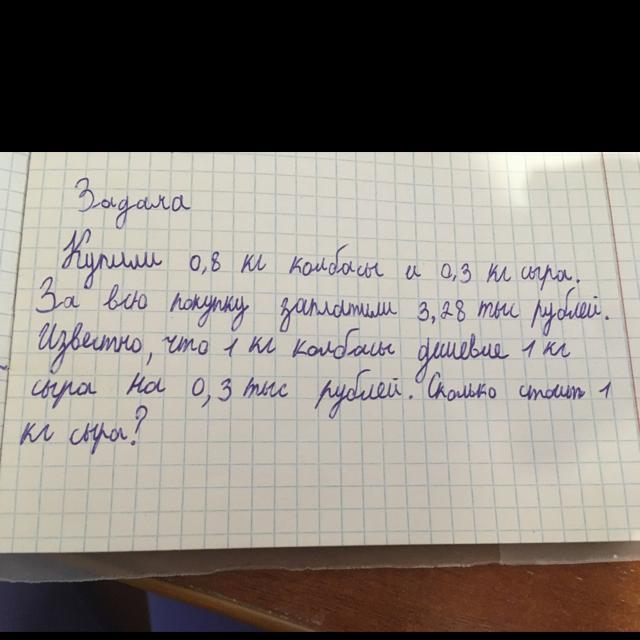 Задача
Купили 0,8 кг колбасы и 0,3 кг сыра.
За всю покупку заплатили 3,28 тыс рублей.
Известно, что 1 кг колбасы дешевле 1 кг
сыра на 0,3 тыс рублей. Сколько стоит 1
кг сыра?